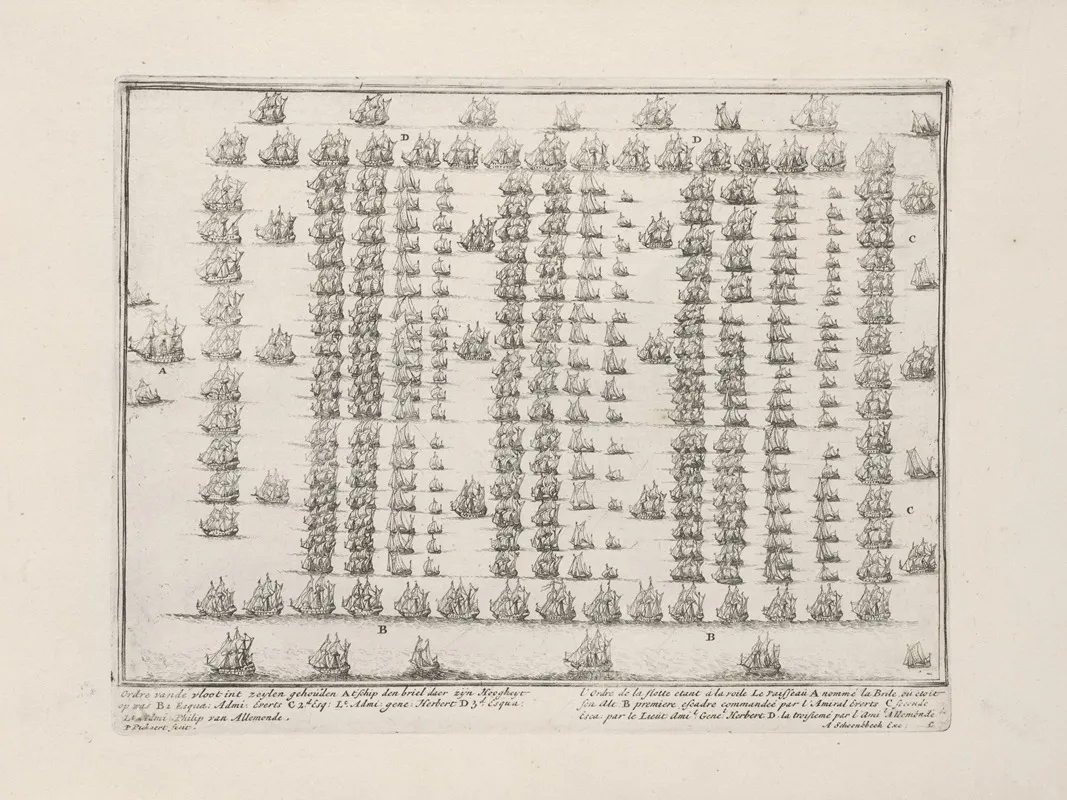 D
D
C
A
C
B
B
Ordre vande vloot int zeylen gehouden A tschip den briel daer zijn Hoogheyt
op was B 1 Esqua: Admi: Everts C 2.d Esq: Lt. Admi: gene: Herbert D 3.d Esqua:
Lt. Admi: Philip van Allemonde.
P Pickaert fecit.
l'Ordre de la flotte etant a la voile Le vaisseau A nommé la Brile ou etoit
son Alt. B premiere escadre commandeé par l'Amiral Everts C seconde
Esca: par le Lieut ami.l Gene: Herbert D. la troisiemé par l'Ami.l Allemonde
A Schoonebeek Exc: C.